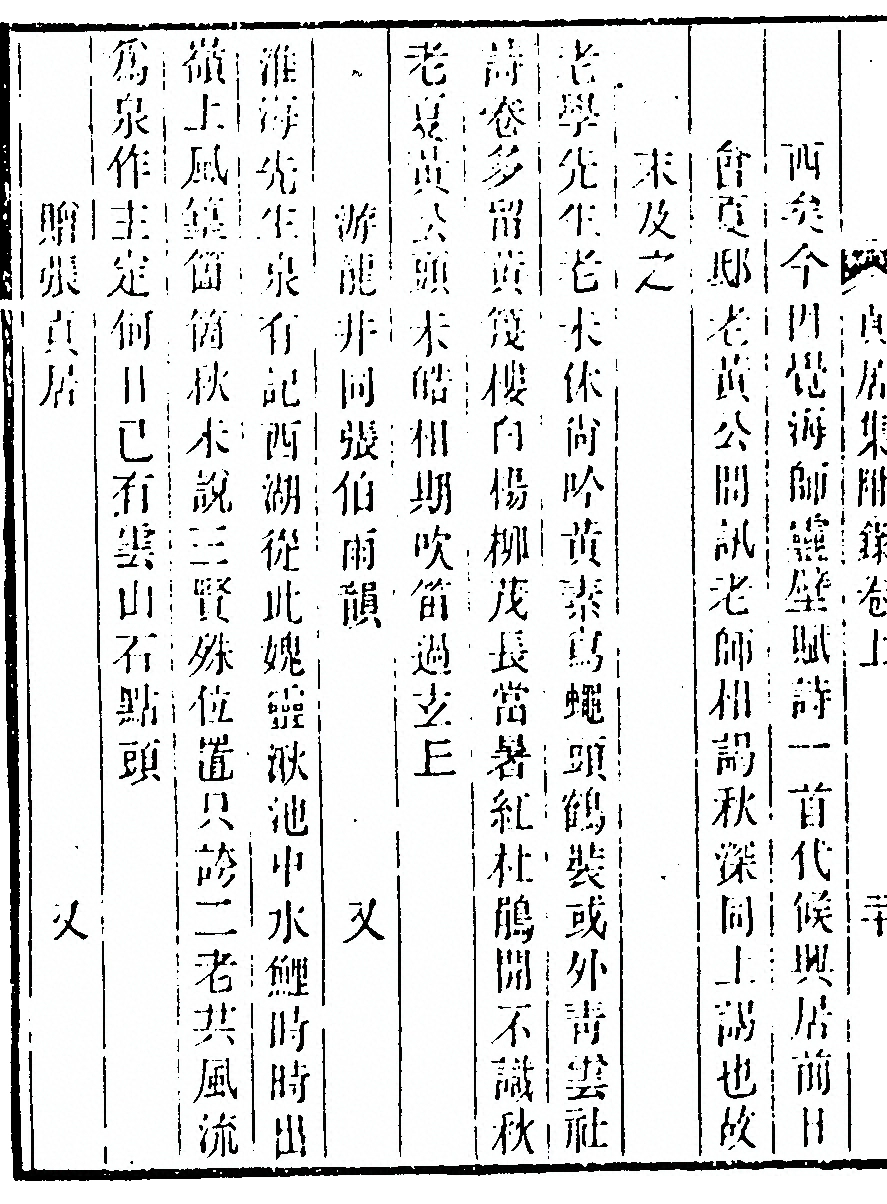 貞居集附錄卷上　二十
西矣今因覺海師靈塋賦詩一首代候興居前日
會夏邸老黃公問訊老師相謁秋深同上謁也故
末及之
老學先生老未休尚吟黃素寫蠅頭鶴裝或外青雲社
詩卷多留黃篾樓白楊柳茂長當暑紅杜鵑開不識秋
老夏黃公頭未皓相期吹笛過玄丘
游龍井同張伯雨韻　又
淮海先生泉有記西湖從此媿靈湫池中水鯉時時出
嶺上風篁箇箇秋未說三賢殊位置只誇二老共風流
爲泉作主定何日已有雲山石點頭
贈張貞居　又